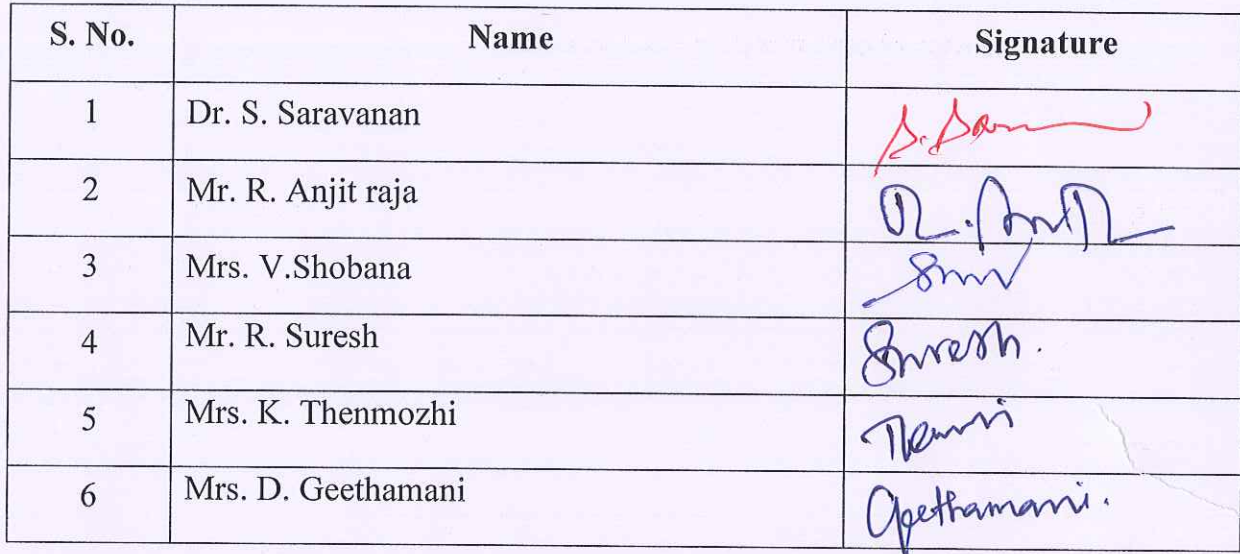 S. No. Name Signature
1 Dr. S. Saravanan
2 Mr. R. Anjit raja
3 Mrs. V.Shobana
4 Mr. R. Suresh Suresh.
5 Mrs. K. Thenmozhi
6 Mrs. D. Geethamani Geethamani.